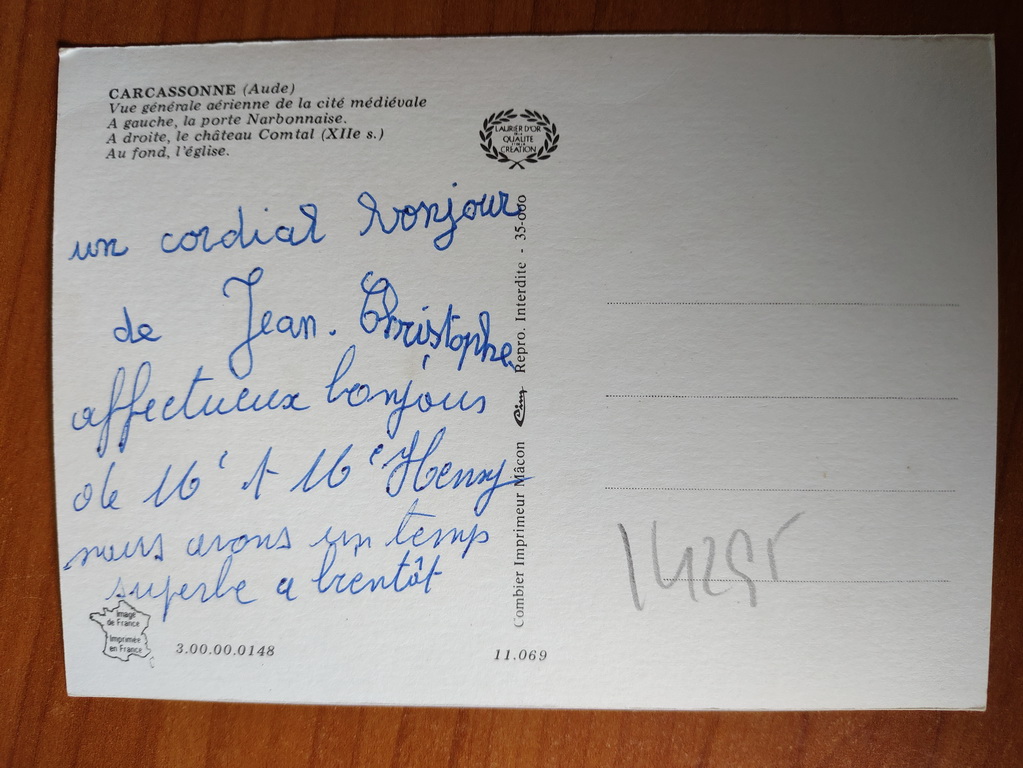 CARCASSONNE (Aude)
Vue générale aérienne de la cité médiévale
A gauche, la porte Narbonnaise.
A droite, le château Comtal (XIIe s.)
Au fond, l'église.
LAURIER D'OR
DE LA
QUALITÉ
ET DE LA
CRÉATION
un cordial bonjour
de Jean. Christophe
affectueux bonjour
de Mr et Me Henry
nous avons un temps
superbe a bientôt
Combier Imprimeur Mâcon Cim Repro. Interdite - 35-000
Image
de France
Imprimée
en France
3.00.00.0148
11.069